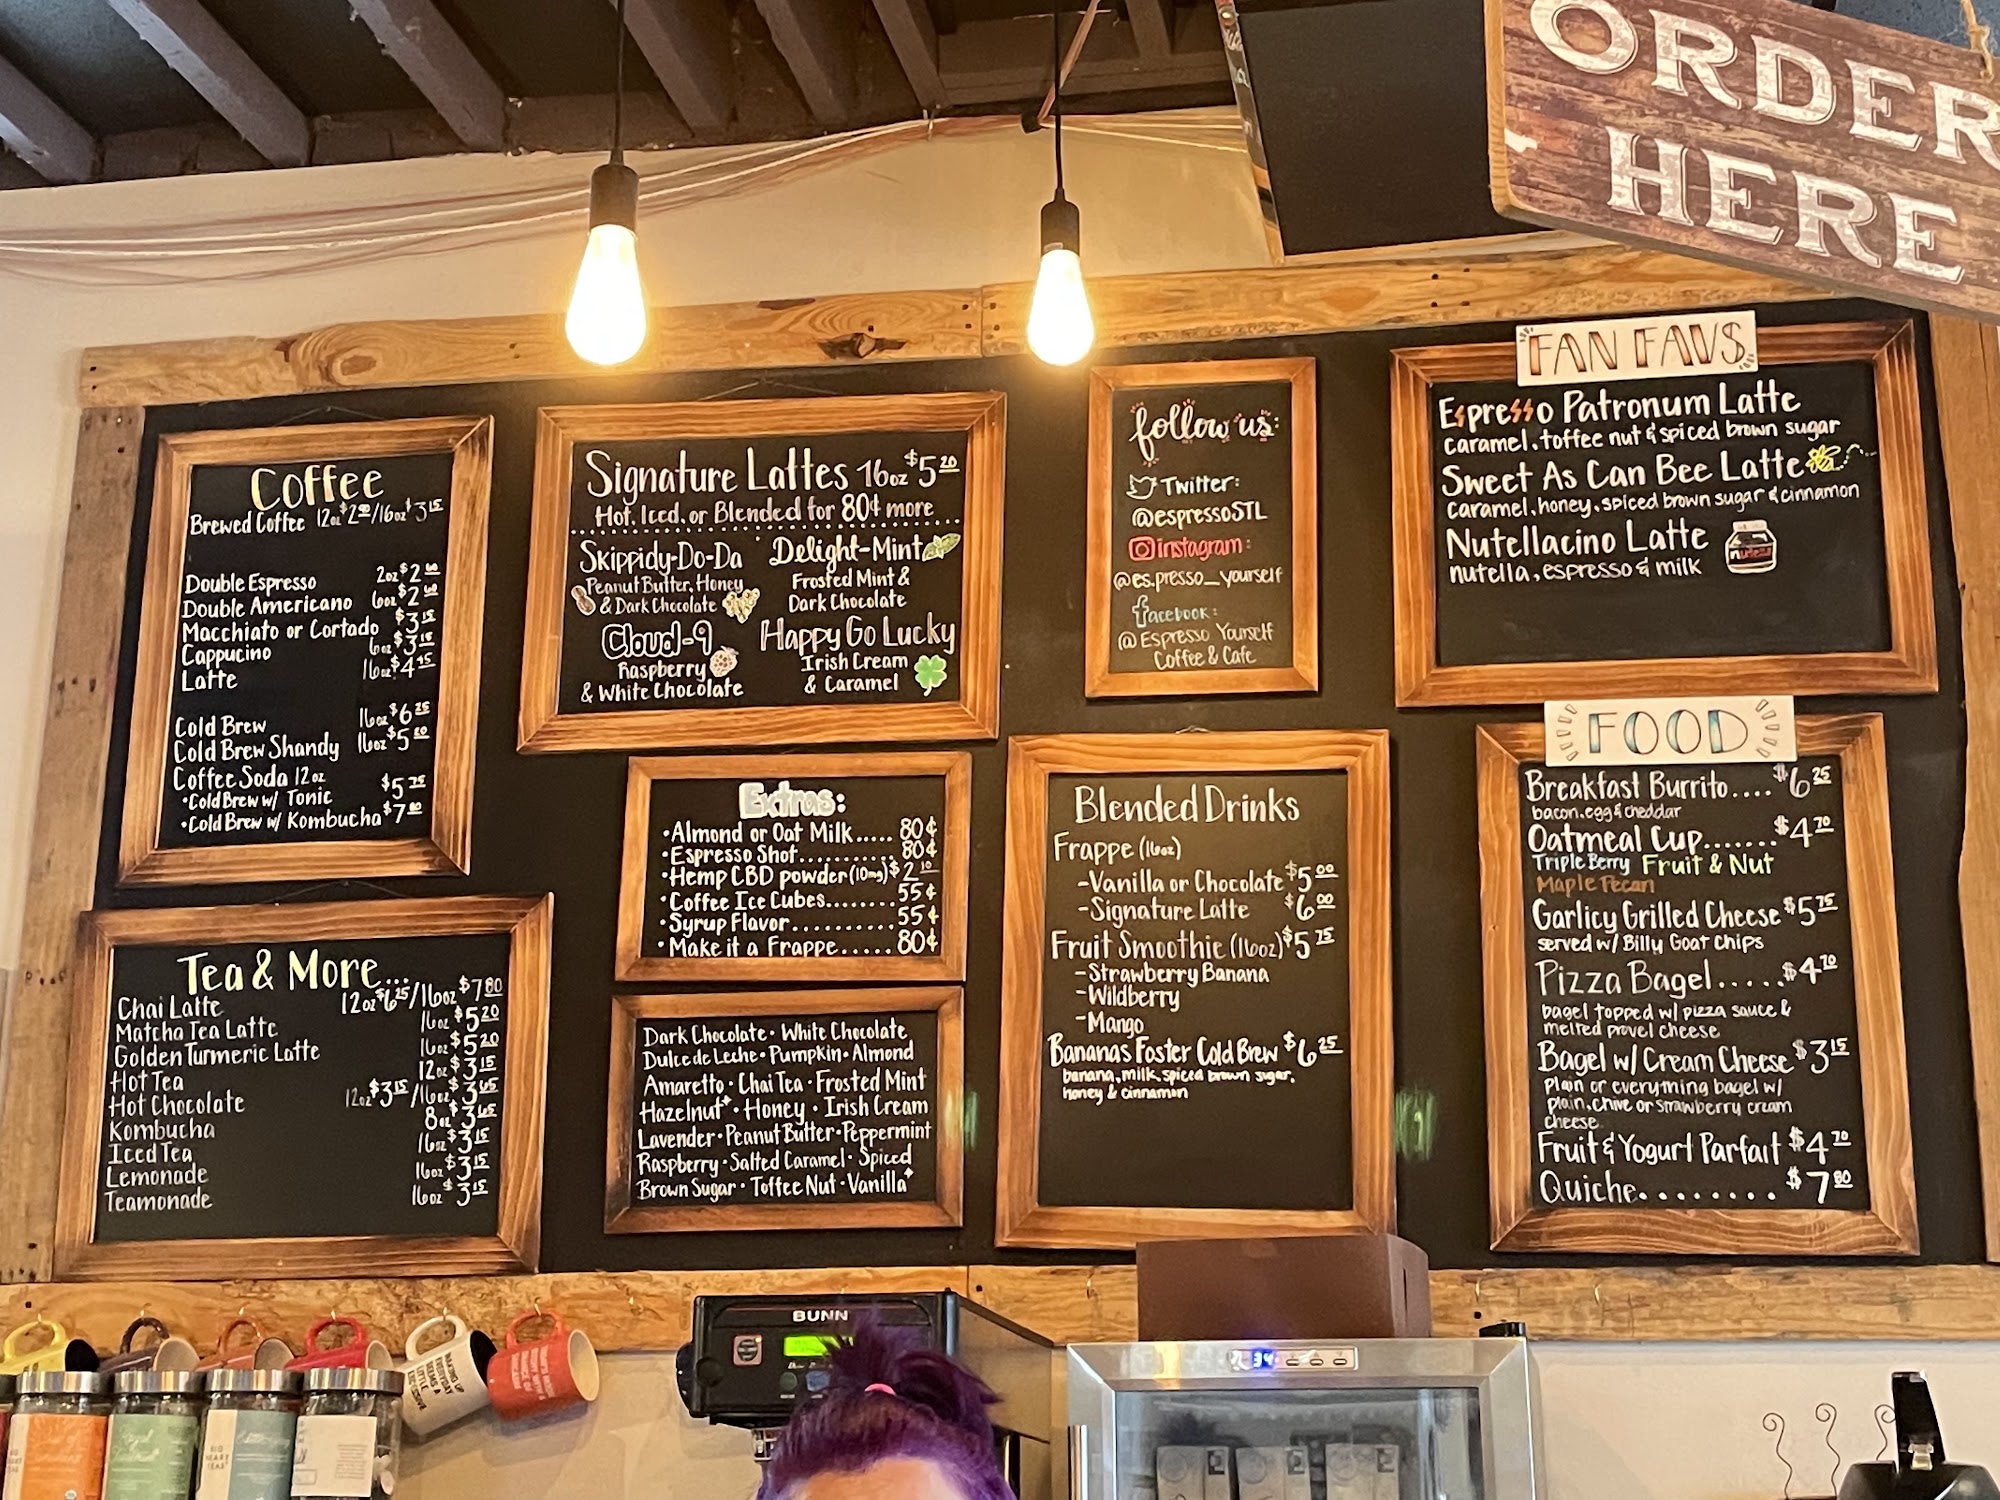 ORDER
HERE
Coffee
Brewed Coffee 12oz $2.90/16oz $3.15
Double Espresso 2oz $2.60
Double Americano 6oz $2.60
Macchiato or Cortado $3.15
Cappucino 6oz $3.15
Latte 16oz $4.45
Cold Brew 16oz $6.25
Cold Brew Shandy 16oz $5.80
Coffee Soda 12oz
•Cold Brew w/ Tonic $5.75
•Cold Brew w/ Kombucha $7.80
Tea & More...
Chai Latte 12oz $6.25/16oz $7.80
Matcha Tea Latte 16oz $5.20
Golden Turmeric Latte 16oz $5.20
Hot Tea 12oz $3.15
Hot Chocolate 12oz $3.15/16oz $3.65
Kombucha 8oz $3.65
Iced Tea 16oz $3.15
Lemonade 16oz $3.15
Teamonade 16oz $3.15
Signature Lattes 16oz $5.20
Hot, Iced, or Blended for 80¢ more
Skippidy-Do-Da
Peanut Butter, Honey
& Dark Chocolate
Delight-Mint
Frosted Mint &
Dark Chocolate
Cloud-9
Raspberry
& White Chocolate
Happy Go Lucky
Irish Cream
& Caramel
Extras:
•Almond or Oat Milk..... 80¢
•Espresso Shot.......... 80¢
•Hemp CBD powder (10mg) $2.10
•Coffee Ice Cubes........ 55¢
•Syrup Flavor........... 55¢
•Make it a Frappe..... 80¢
Dark Chocolate • White Chocolate
Dulce de Leche • Pumpkin • Almond
Amaretto • Chai Tea • Frosted Mint
Hazelnut+ • Honey • Irish Cream
Lavender • Peanut Butter • Peppermint
Raspberry • Salted Caramel • Spiced
Brown Sugar • Toffee Nut • Vanilla+
follow us:
Twitter:
@espressoSTL
instagram:
@es.presso_yourself
facebook:
@ Espresso Yourself
Coffee & Cafe
Blended Drinks
Frappe (16oz)
-Vanilla or Chocolate $5.00
-Signature Latte $6.00
Fruit Smoothie (16oz) $5.75
-Strawberry Banana
-Wildberry
-Mango
Bananas Foster Cold Brew $6.25
banana, milk, spiced brown sugar,
honey & cinnamon
FAN FAVS
Espresso Patronum Latte
caramel, toffee nut & spiced brown sugar
Sweet As Can Bee Latte
caramel, honey, spiced brown sugar & cinnamon
Nutellacino Latte
nutella, espresso & milk
nutella
FOOD
Breakfast Burrito.... $6.25
bacon, egg & cheddar
Oatmeal Cup....... $4.70
Triple Berry Fruit & Nut
Maple Pecan
Garlicy Grilled Cheese $5.75
served w/ Billy Goat Chips
Pizza Bagel..... $4.70
bagel topped w/ pizza sauce &
melted provel cheese
Bagel w/ Cream Cheese $3.15
plain or everything bagel w/
plain, chive or strawberry cream
cheese
Fruit & Yogurt Parfait $4.70
Quiche........ $7.80
BUNN
34
WAKING UP
EVERYDAY
SEEMS A
LITTLE
EXCESSIVE